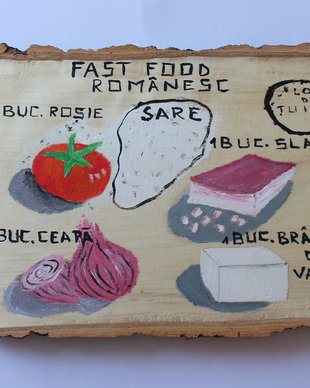 FAST FOOD
ROMÂNESC
BUC. ROSIE
SARE
1 BUC. SLA
BUC. CEAPĂ
1 BUC. BRÂ